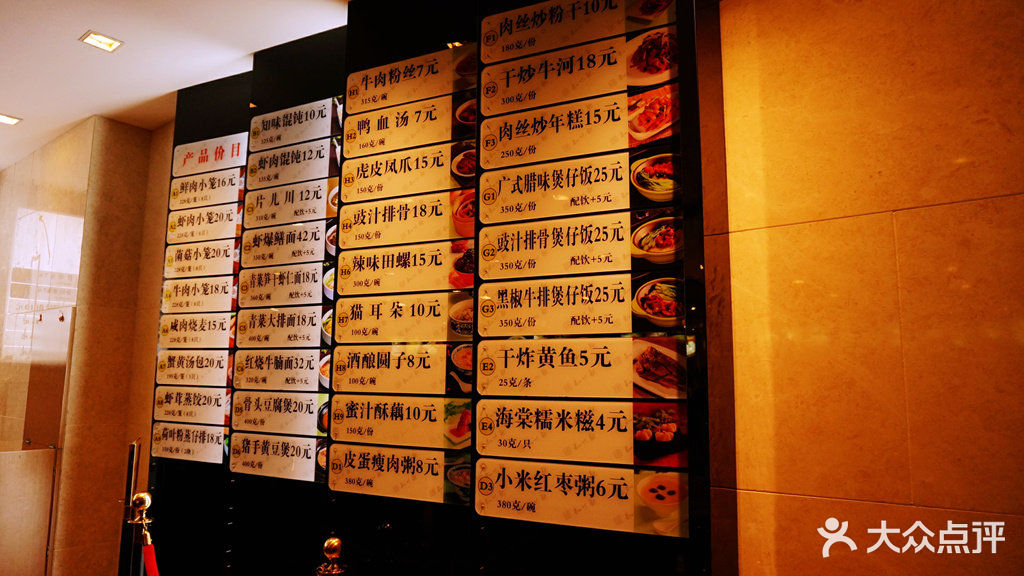 产品价目
鲜肉小笼16元
虾肉小笼20元
菌菇小笼20元
牛肉小笼18元
咸肉烧麦15元
蟹黄汤包20元
虾茸蒸饺20元
荷叶粉蒸仔排18元
知味馄饨10元
虾肉馄饨12元
片儿川12元
配饮+5元
虾爆鳝面42元
配饮+5元
青菜笋干虾仁面18元
配饮+5元
青菜大排面18元
配饮+5元
红烧牛腩面32元
配饮+5元
骨头豆腐煲20元
400克/份
猪手黄豆煲20元
400克/份
H1
牛肉粉丝7元
315克/碗
H2
鸭血汤7元
160克/碗
H3
虎皮凤爪15元
150克/份
H4
豉汁排骨18元
150克/份
H6
辣味田螺15元
300克/碗
H7
猫耳朵10元
100克/碗
H8
酒酿圆子8元
100克/碗
H9
蜜汁酥藕10元
150克/份
D1
皮蛋瘦肉粥8元
380克/碗
F1
肉丝炒粉干10元
180克/份
F2
干炒牛河18元
300克/份
F3
肉丝炒年糕15元
250克/份
G1
广式腊味煲仔饭25元
350克/份 配饮+5元
G2
豉汁排骨煲仔饭25元
350克/份 配饮+5元
G3
黑椒牛排煲仔饭25元
350克/份 配饮+5元
E2
干炸黄鱼5元
25克/条
E4
海棠糯米糍4元
30克/只
D3
小米红枣粥6元
380克/碗
大众点评